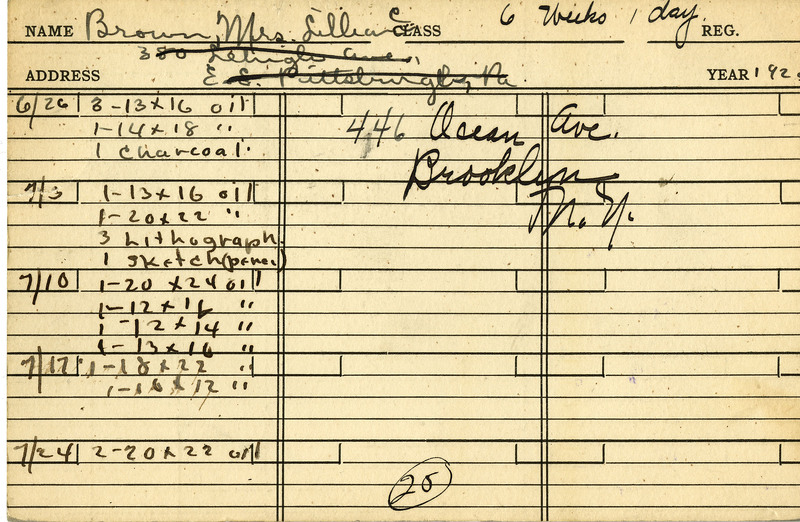 NAME Brown, Mrs. Lillian C. CLASS 6 Weeks 1 day. REG.
380 Lehigh Ave.,
ADDRESS E. E. Pittsburgh, Pa YEAR 192
6/26 3-13x16 oil
1-14x18 "
1 Charcoal
446 Ocean Ave.
Brooklyn
N.Y.
7/3 1-13x16 oil
1-20x22 "
3 Lithograph
1 sketch
7/10 1-20x24 oil
1-12x16 "
1-12x14 "
1-13x16 "
7/17 1-18x22 "
1-10x12 "
7/24 2-20x22 oil
25